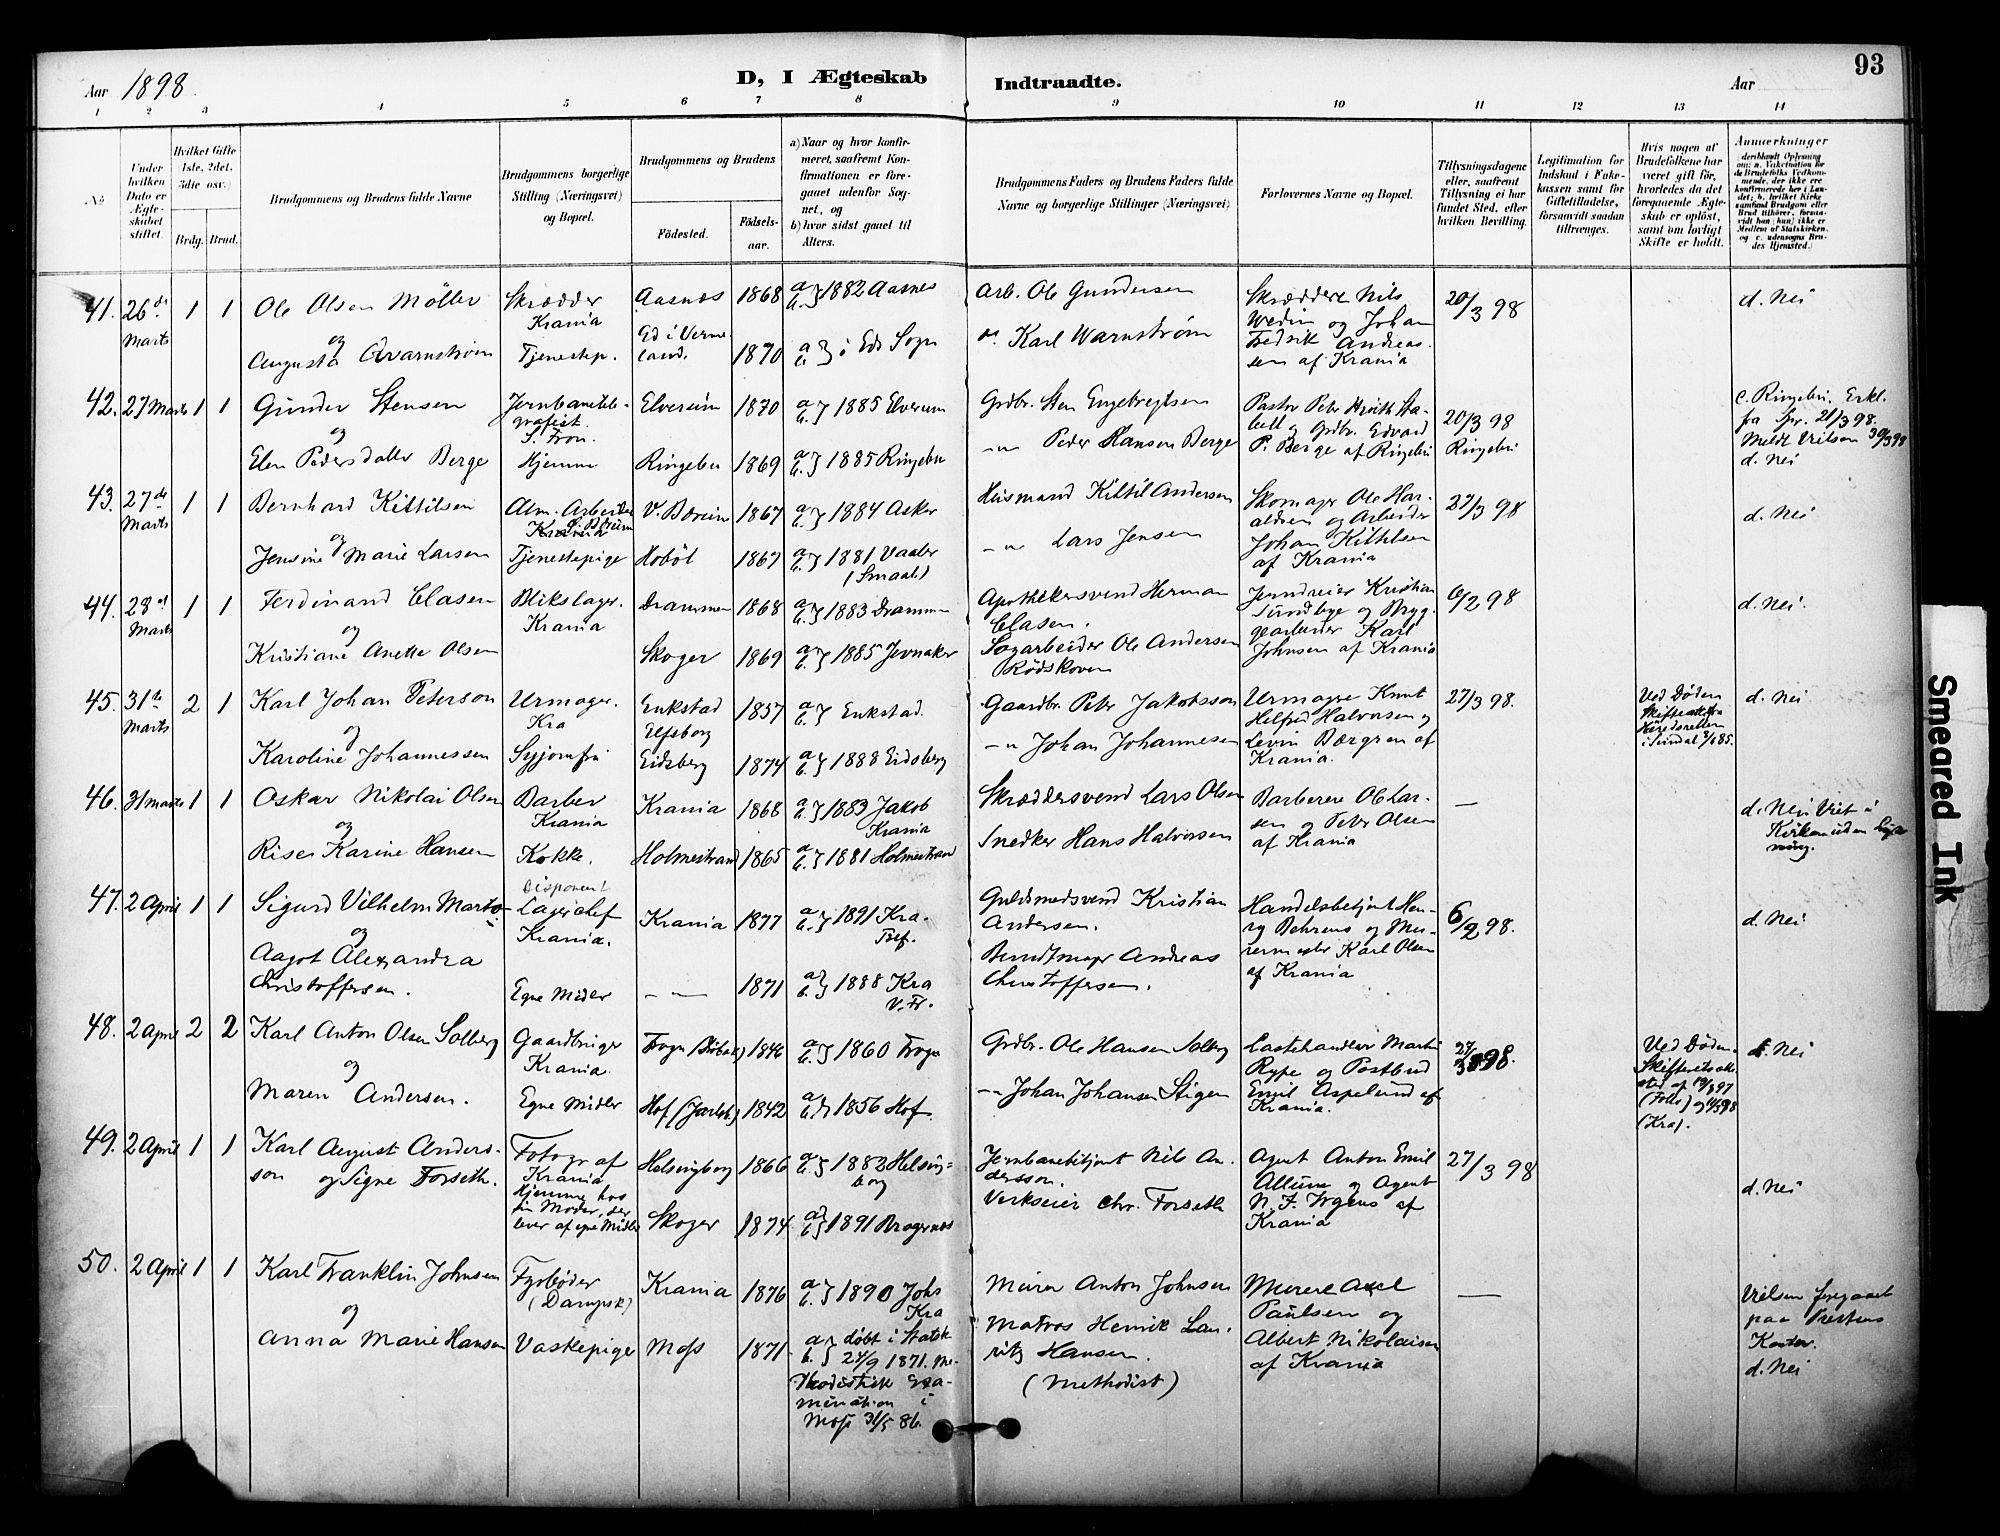 Aar 1898.
D, I Ægteskab
Indtraadte.
Aar
93
1 2 3 4 5 6 7 8 9 10 11 12 13 14
No.
Under hvilken Dato er Ægteskabet stiftet.
Hvilket Gifte (1ste, 2det, 3die osv.)
Brdg. Brud.
Brudgommens og Brudens fulde Navne
Brudgommens borgerlige Stilling (Næringsvei) og Bopæl.
Brudgommens og Brudens
Födested.
Födselsaar.
a) Naar og hvor konfirmeret, saafremt Konfirmationen er foregaaet udenfor Sognet, og
b) hvor sidst gaaet til Alters.
Brudgommens Faders og Brudens Faders fulde Navne og borgerlige Stillinger (Næringsvei)
Forlovernes Navne og Bopæl.
Tillysningsdagene eller, saafremt Tillysning ei har fundet Sted, efter hvilken Bevilling.
Legitimation for Indskud i Enkekassen samt for Giftetilladelse, forsaavidt saadan tiltrænges.
Hvis nogen af Brudefolkene har været gift før, hvorledes da det foregaaende Ægteskab er opløst, samt om lovligt Skifte er holdt.
Anmærkninger
41. 26de Marts 1 1
Ole Olsen Möller
og
Augusta Qvarnström
Skrædder
Krania
Tjenestep.
Aasnes 1868 a b } 1882 Aasnes
Ed i Vermeland. 1870 a b } i Eds Sogn
Arb. Ole Gundersen
" Karl Warnström
Skræddere Nils Wedin og Johan Fredrik Andreassen af Krania
20/3 98
d. Nei
42. 27 Marts 1 1
Gunder Stensen
og
Elen Pedersdatter Berge
Jernbanetelegrafist.
S. Fron.
Hjemme
Elverum 1870 a b } 1885 Elverum
Ringebu 1869 a b } 1885 Ringebu
Grdbr. Sten Engebregtsen
—"— Peder Hansen Berge
P. Berge af Ringebu
20/3 98
Ringebu
c. Ringebu. Erkl. fra Spr. 21/3 98.
Meldt Vielsen 30/3 98
d. Nei
43. 27de Marts 1 1
Bernhard Kittilsen
og
Jensine Marie Larsen
Alm. Arbeider
Tjenestepige
V. Bærum 1867 a b } 1884 Asker
Hobøl 1867 a b } 1881 Vaaler (Smaal.)
Husmand Kittil Andersen
—"— Lars Jensen
Skomager Ole Haraldsen og Arbeider Johan Kittilsen af Krania
27/3 98
d. Nei
44. 28de Marts 1 1
Ferdinand Clasen
og
Kristiane Anette Olsen
Blikslager.
Krania
Drammen 1868 a b } 1883 Drammen
Skoger 1869 a b } 1885 Jevnaker
Apothekersvend Herman Clasen.
Sagarbeider Ole Andersen Rødskoven
Jerndreier Kristian Sundbye og Bryggearbeider Karl Johnsen af Krania
6/2 98
d. Nei.
45. 31te Marts 2 1
Karl Johan Peterson
og
Karoline Johannessen
Urmager.
Kra
Syjomfru
Enkstad Elfsborg 1857 a b } Enkstad.
Eidsberg 1874 a b } 1888 Eidsberg
Gaardbr. Petr Jakobsson
—"— Johan Johannesen
Urmagere Knut Helfred Halvorsen og Levin Bergren af Krania.
27/3 98.
Ved Døden
d. Nei
46. 31 Marts 1 1
Oskar Nikolai Olsen
og
Riser Karine Hansen
Barber
Krania
Kokke.
Krania 1868 a b } 1883 Jakob Krania
Holmestrand 1865 a b } 1881 Holmestrand
Skræddersvend Lars Olsen
Snedker Hans Halvorsen
Barberere Ole Larsen og Peter Olsen af Krania
—
d. Nei Viet i
47. 2 April 1 1
Sigurd Vilhelm
og
Aagot Alexandra Christoffersen.
Disponent
Lagerchef
Krania.
Egne Midler
Krania 1877 a b } 1891 Kra. Tref.
—"— 1871 a b } 1888 Kra V. Fr.
Guldsmedsvend Kristian Andersen.
Buntmager Andreas Christoffersen.
Handelsbetjent Henry Behrens og Murermester Karl Olsen af Krania
6/2 98.
d. Nei
48. 2 April 2 2
Karl Anton Olsen Solberg
og
Maren Andersen.
Gaardbruger
Krania.
Egne Midler
Frogn (Drøbak) 1846 a b } 1860 Frogn
Hof (Jarlsb.) 1842 a b } 1856 Hof.
Grdbr. Ole Hansen Solberg
—"— Johan Johansen Stigen
Lastehandler Martin Rype og Postbud Emil Aspelund af Krania.
27/3 98.
Ved Døden.
(Kra).
d. Nei
49. 2 April 1 1
Karl August Andersson og Signe Forseth.
Fotogr af Krania
Hjemme hos sin Moder, der lever af egne Midler
Helsingborg 1866 a b } 1882 Helsingborg
Skoger 1874 a b } 1891 Bragernes
Jernbanebetjent Nils Andersson.
Verkseier Chr. Forseth
Agent Anton Emil Allum og Agent N. J. Irgens af Krania
27/3 98
d. Nei
50. 2 April 1 1
Karl Franklin Johnsen
og
Anna Marie Hansen
Fyrbøder (Dampsk)
Vaskepige
Krania 1876 a b } 1890 Johs Kra
Moss 1871 a b } døbt i Statsk 24/9 1871. Methodistisk Examination i Moss 31/5 86.
Murer Anton Johnsen
Matros Henrik Lauritz Hansen.
(Methodist)
Murere Axel Paulsen og Albert Nikolaisen af Krania
—
Vielsen foregaaet paa Prestens Kontor.
d. Nei
Smeared Ink